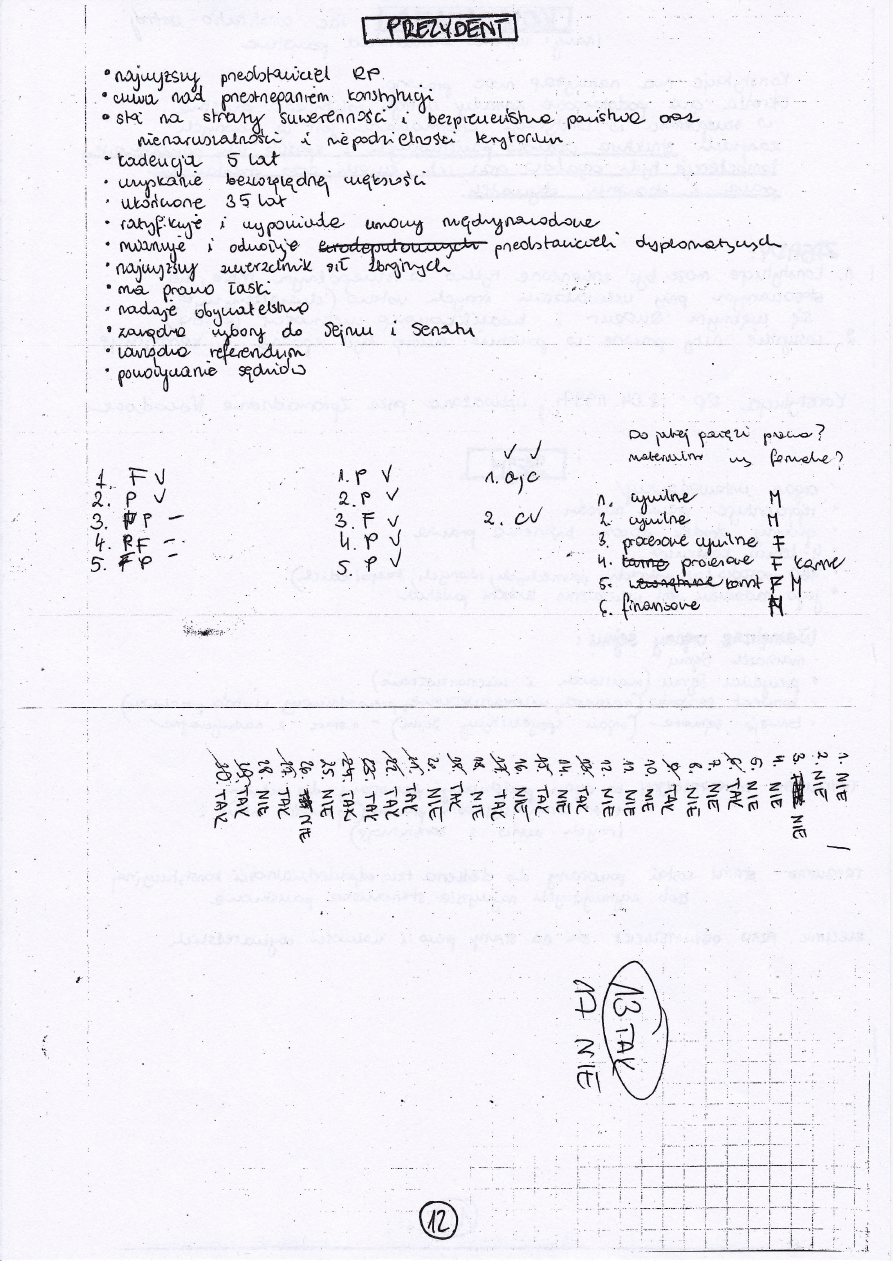 PREZYDENT
• najwyższy predstawiciel RP
• czuwa nad przestrzeganiem konstytucji
• stoi na straży suwerenności i bezpieczeństwa państwa oraz
nienaruszalności i niepodzielności terytorium
• kadencja 5 lat
• uzyskanie bezwzględnej większości
• ukończone 35 lat
• ratyfikuje i wypowiada umowy międzynarodowe
• mianuje i odwołuje predstawicieli dyplomatycznych
• najwyższy zwierzchnik sił zbrojnych
• ma prawo łaski
• nadaje obywatelstwo
• zarządza wybory do Sejmu i Senatu
• zarządza referendum
• powoływanie sędziów
1. F V
2. P V
3. P –
4. F –
5. P –
1. P V
2. P V
3. F V
4. P V
5. P V
V V
1. a, c
2. c V
Do jakiej gałęzi prawa?
materialne czy formalne?
1. cywilne M
2. cywilne M
3. procesowe cywilne F
4. procesowe F karne
5. konst M
6. finansowe M
1. NIE
2. NIE
3. NIE
4. NIE
5. NIE
6. TAK
7. NIE
8. NIE
9. TAK
10. NIE
11. NIE
12. NIE
13. TAK
14. NIE
15. TAK
16. NIE
17. TAK
18. NIE
19. TAK
20. NIE
21. TAK
22. TAK
23. TAK
24. TAK
25. NIE
26. NIE
27. TAK
28. NIE
29. TAK
30. TAK
13 TAK
17 NIE
12